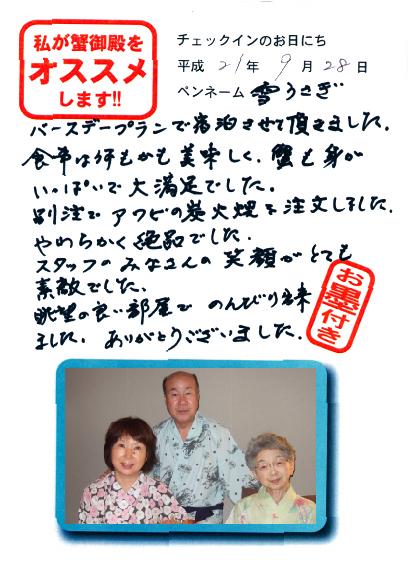 私が蟹御殿を
オススメ
します!!
チェックインのお日にち
平成 21年 9月 28日
ペンネーム 雪うさぎ
バースデープランで宿泊させて頂きました。
食事は何もかも美味しく、蟹も身が
いっぱいで大満足でした。
別注で アワビの炭火焼を注文しました。
やわらかく絶品でした。
スタッフのみなさんの笑顔がとても
素敵でした。
眺望の良い部屋で のんびり出来
ました。ありがとうございました。
お墨付き